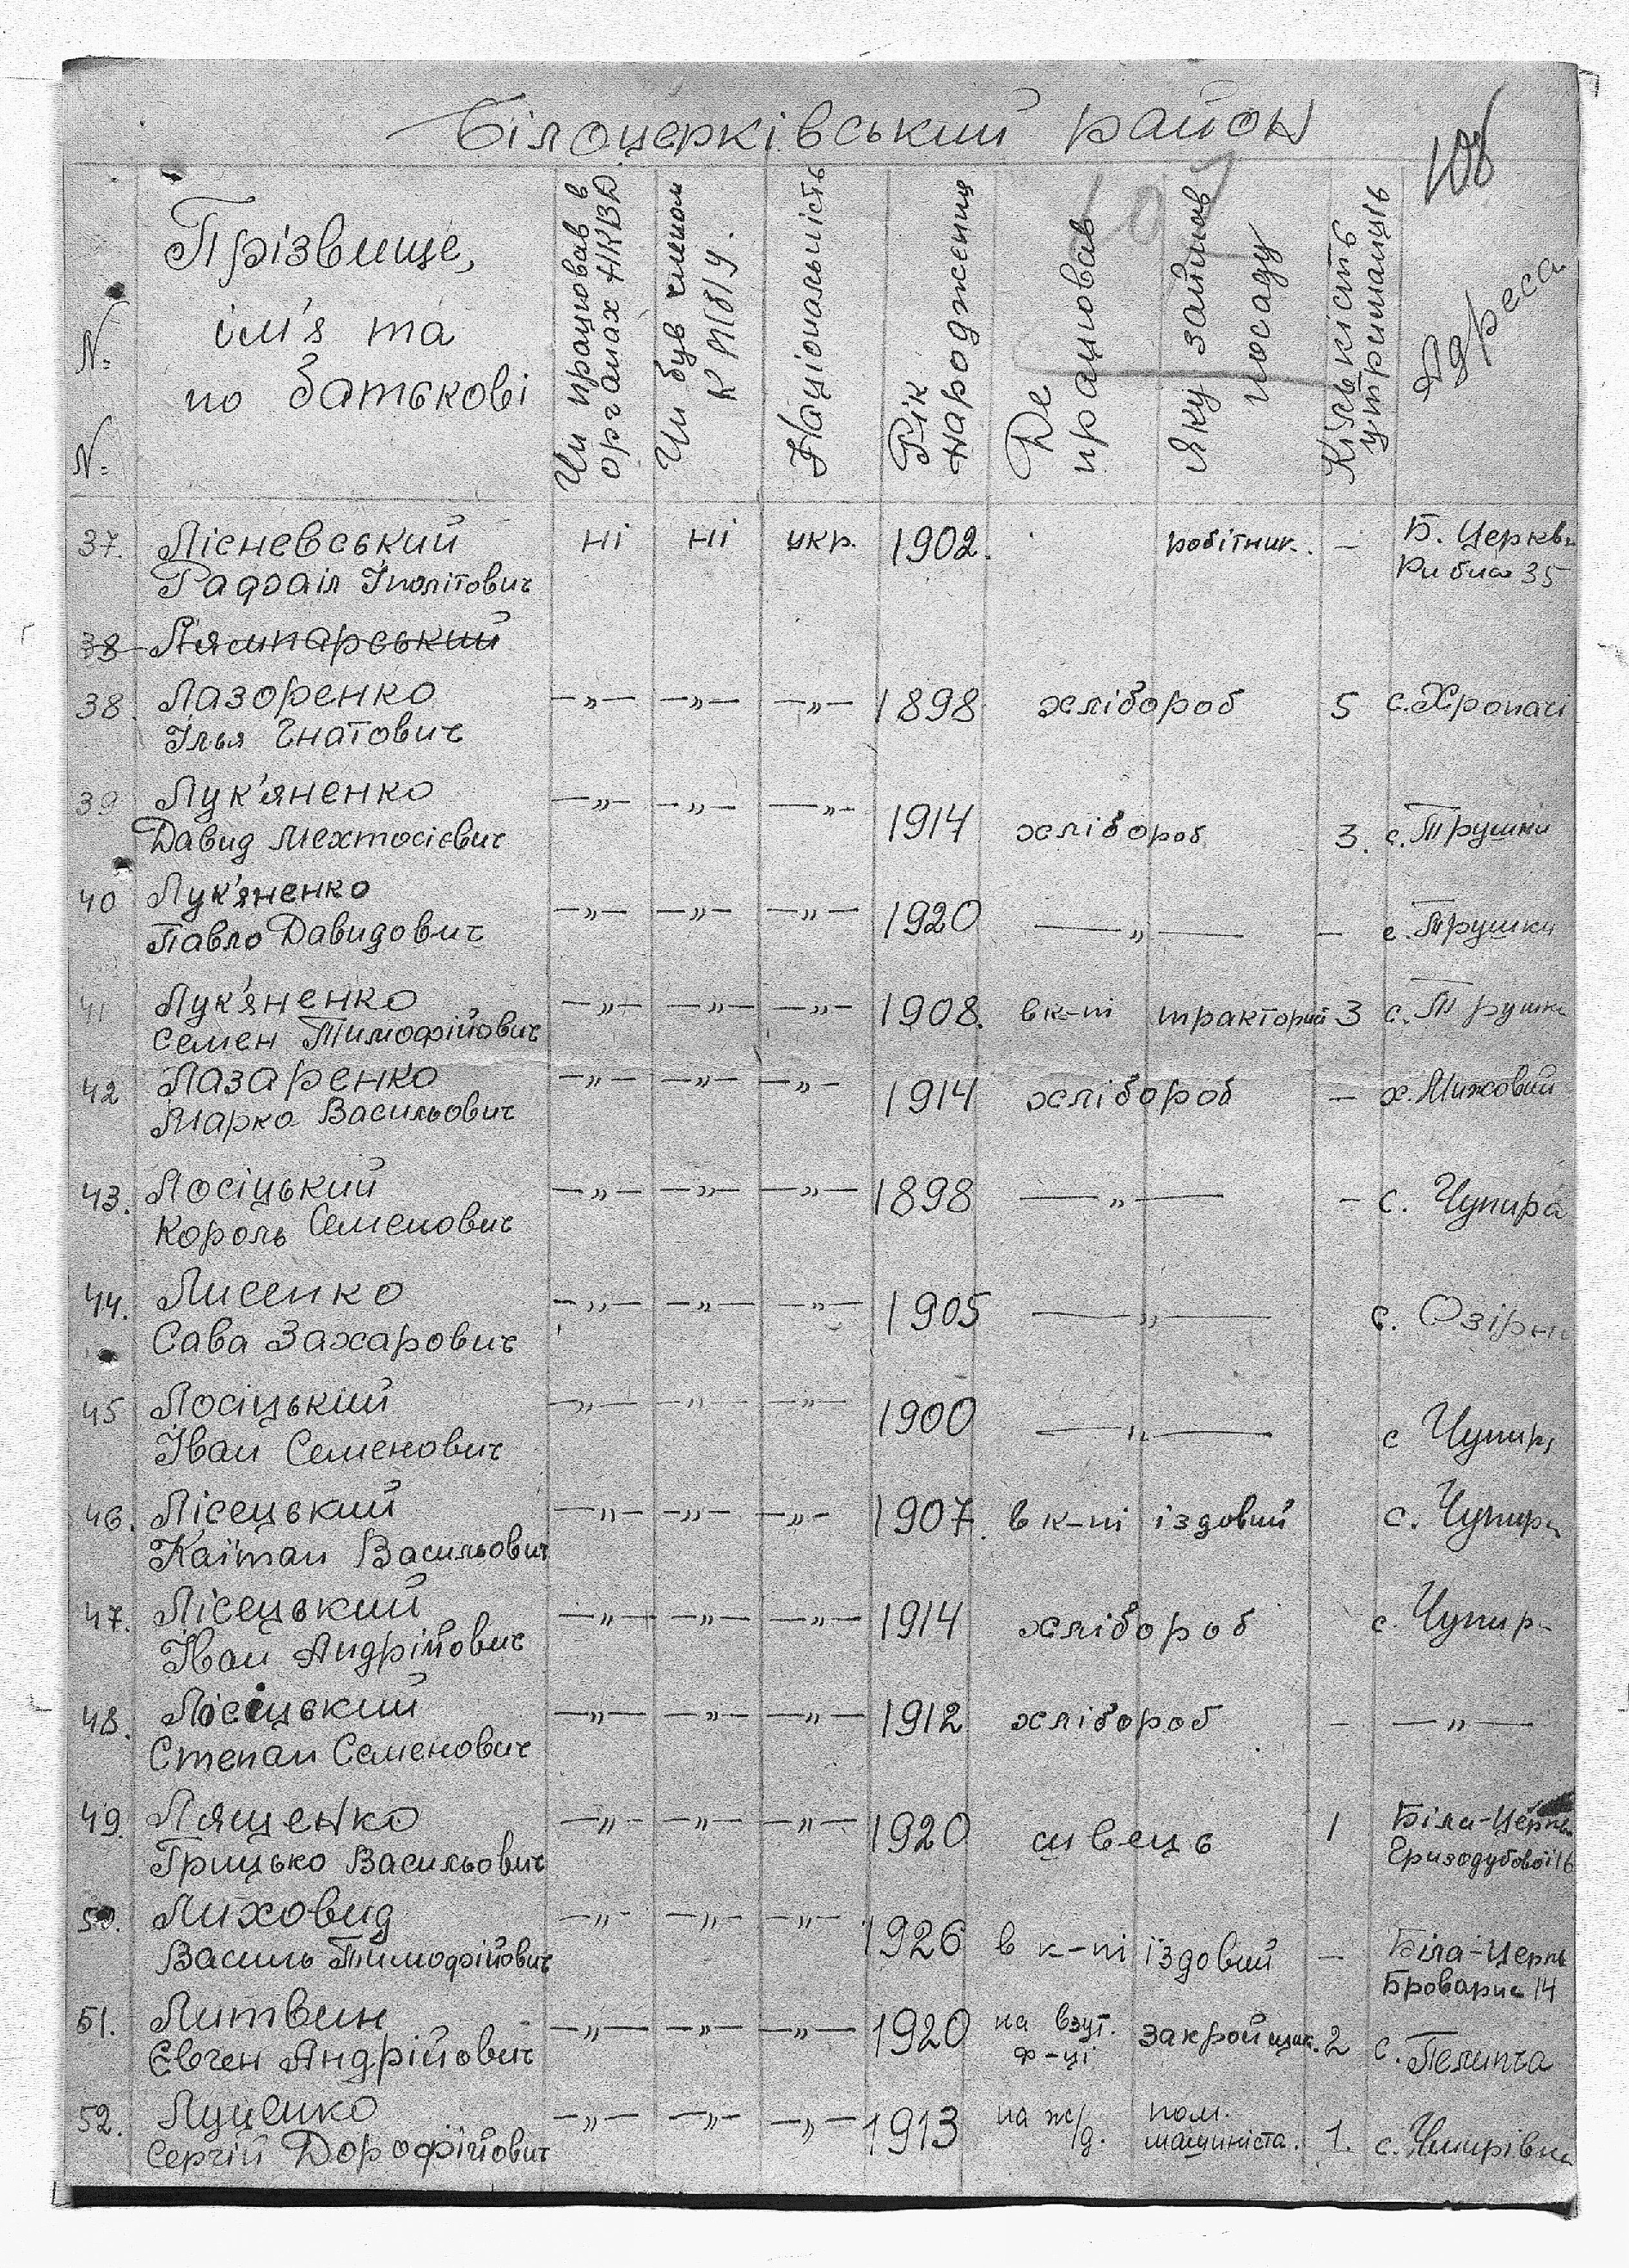 Білоцерківський район
108
107
N:
N:
Прізвище,
ім'я та
по батькові
Чи працював в
органах НКВД.
Чи був членом
КП(б)У.
Національність
Рік
народження
Де
працював
Яку займав
посаду
Кількість
утриманців
Адреса
37. Лісневський ні ні укр. 1902. робітник. — Б. Церква
Рафаіл Іполітович Рибна 35
38 Лямпарський
38. Лазоренко —„— —„— —„— 1898 хлібороб 5 с. Храпачі
Ілья Гнатович
39 Лук'яненко —„— —„— —„—
Давид Мехтосієвич 1914 хлібороб 3. с. Трушки
40 Лук'яненко —„— —„— —„— 1920 —„— — с. Трушки
Павло Давидович
41 Лук'яненко —„— —„— —„— 1908. в к-пі тракторий 3 с. Трушки
Семен Тимофійович
42 Лазаренко —„— —„— —„— 1914 хлібороб — х.
Марко Васильович
43. Лосіцький —„— —„— —„— 1898 —„— — с. Чупира
Король Семенович
44. Лисенко —„— —„— —„— 1905 —„— с. Озірн
Сава Захарович
45 Лосіцький —„— —„— —„— 1900 —„— с Чупир
Іван Семенович
46. Лісецький —„— —„— —„— 1907. в к-пі їздовий с. Чупир
Каїтан Васильович
47. Лісецький —„— —„— —„— 1914 хлібороб с. Чупир
Іван Андрійович
48. Лосіцький —„— —„— —„— 1912 хлібороб — —„—
Степан Семенович
49. Лященко —„— —„— —„— 1920 швець 1 Біла-Церква
Грицько Васильович Гризодубової 16
50. Лиховид —„— —„— —„— 1926 в к-пі їздовий — Біла-Церкв
Василь Тимофійович Броварна 14
51. Литвин —„— —„— —„— 1920 на взут. закройщик. 2 с. Пелипча
Євген Андрійович ф-ці
52. Луценко —„— —„— —„— 1913 на ж/д. пом. 1. с.
Сергій Дорофійович машиніста.